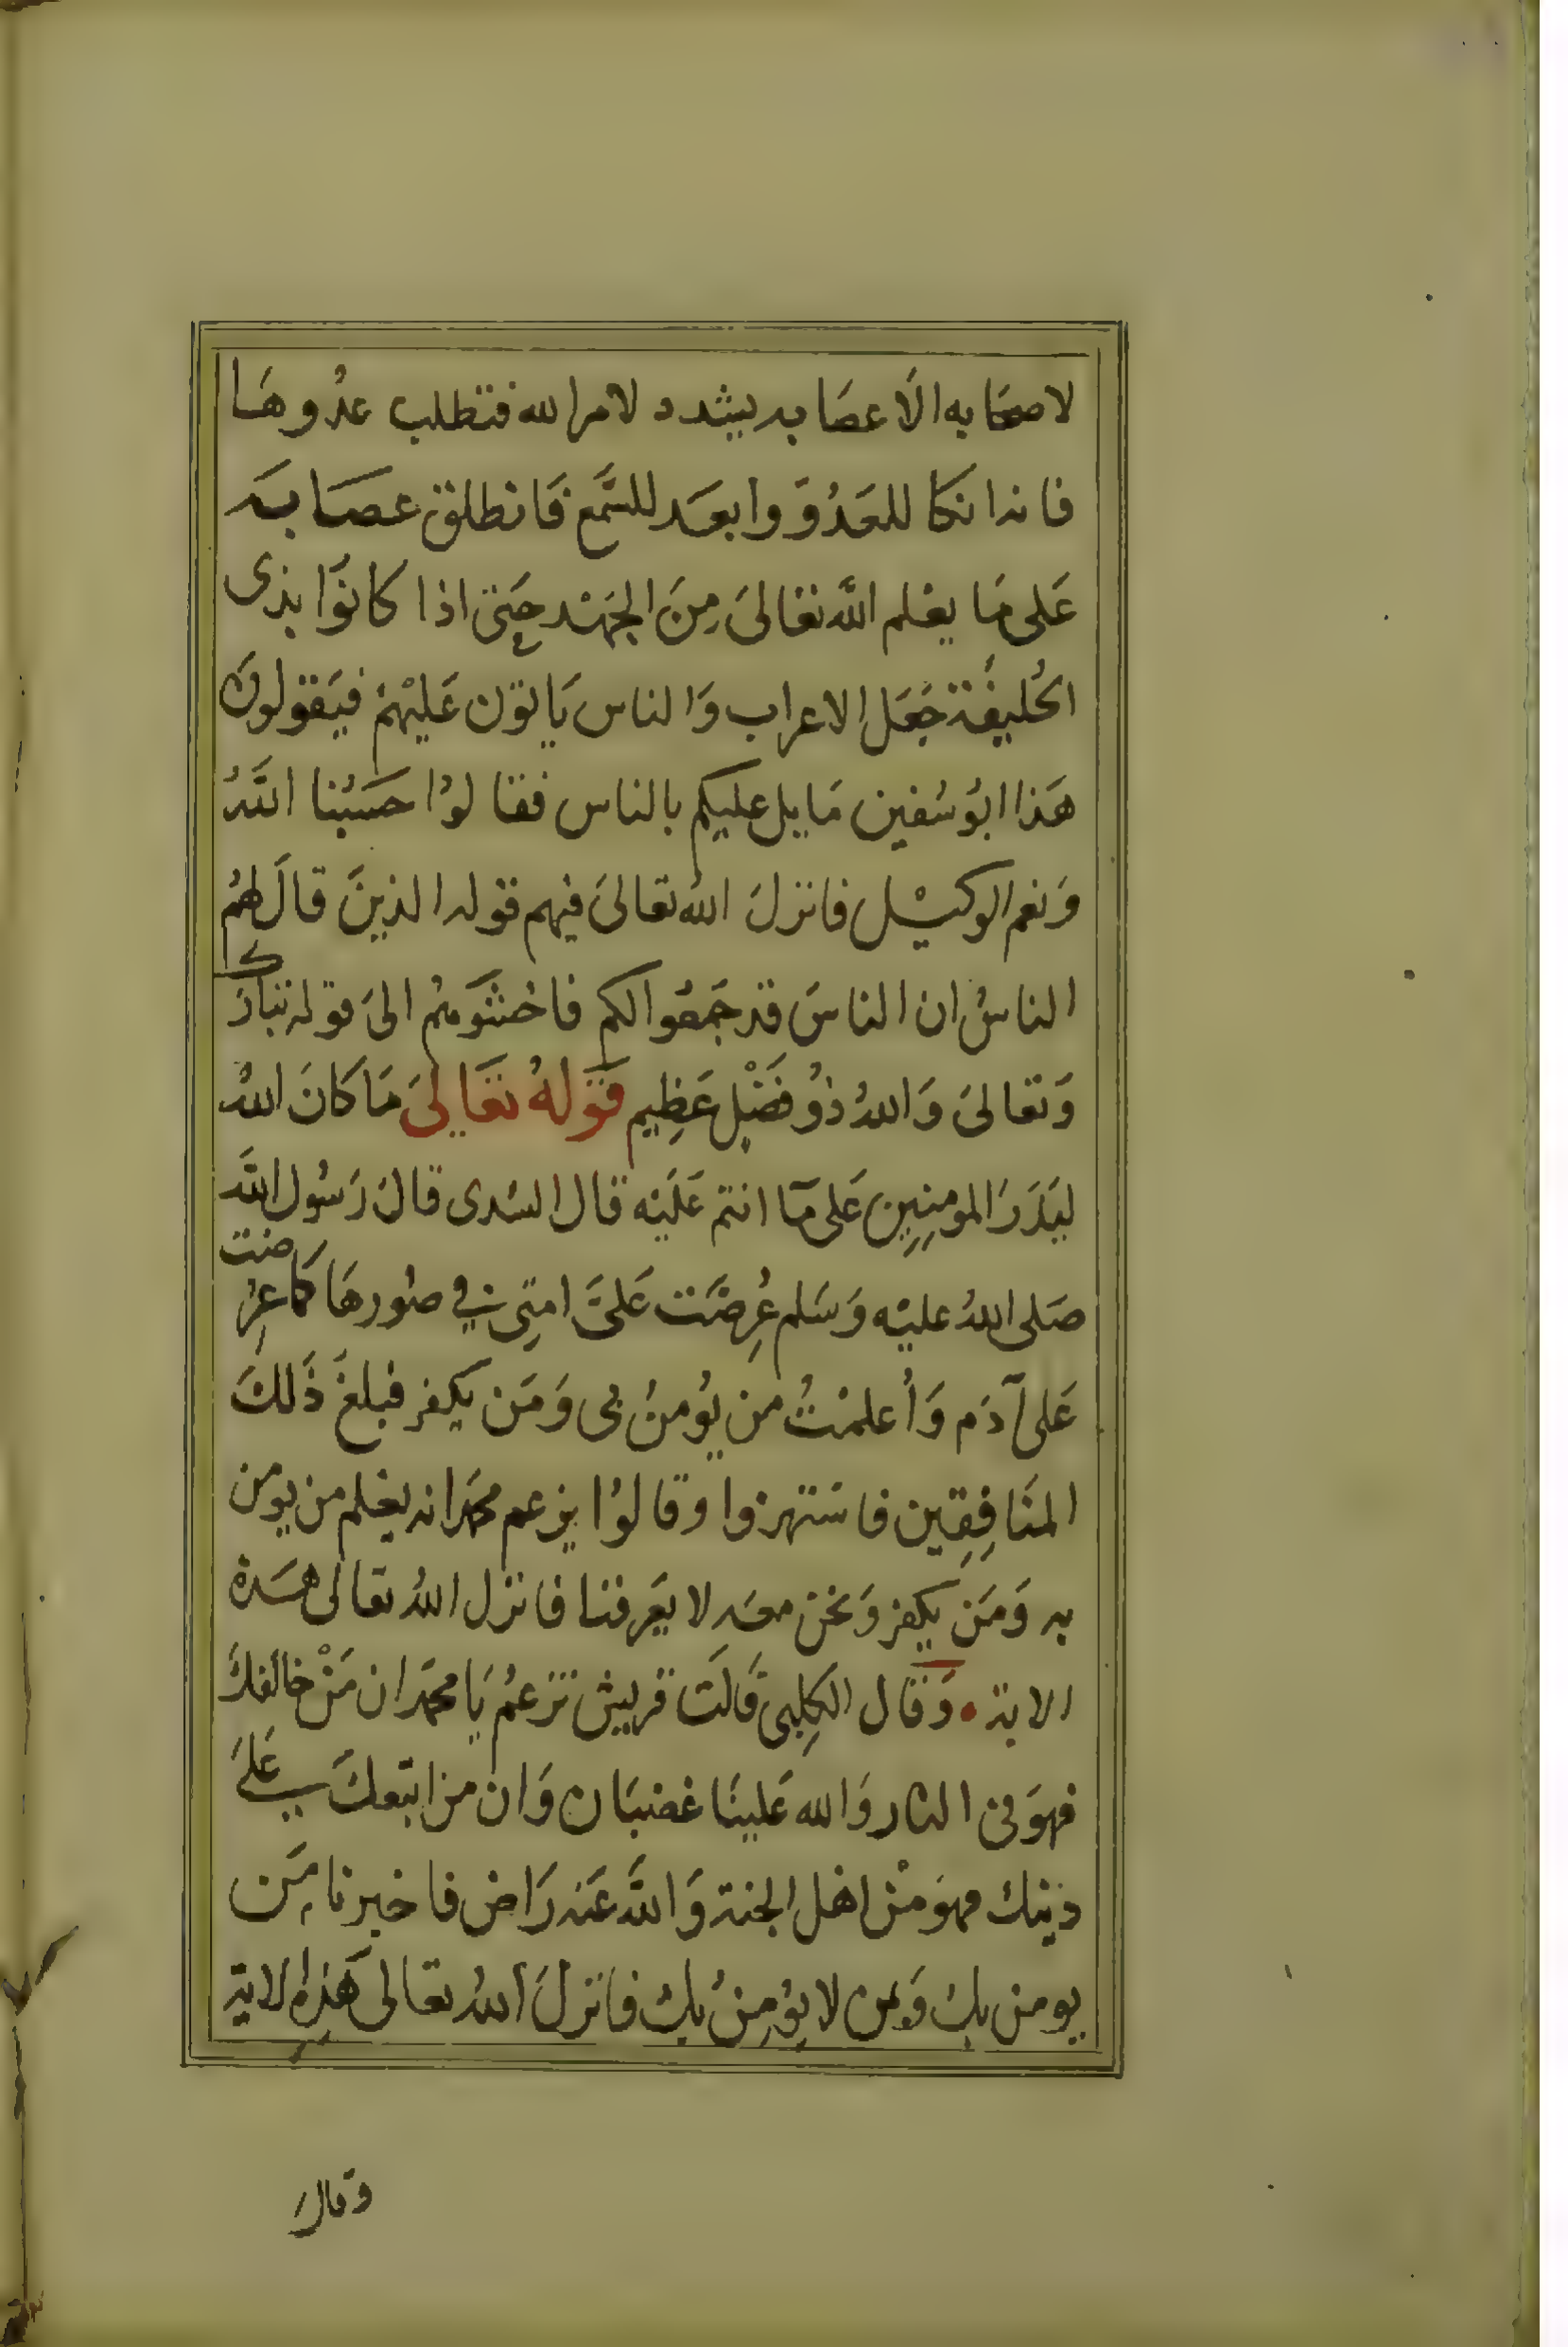 لاصحابه الا عصابه يشدد لامر الله فتطلب عدوها
فانه انكا للعدو وابعد للسمع فانطلق عصابه
على ما يعلم الله تعالى من الجهد حتى اذا كانوا بذى
الحليفة جعل الاعراب والناس ياتون عليهم فيقولون
هذا ابو سفين مايل عليكم بالناس فقالوا حسبنا الله
ونعم الوكيل فانزل الله تعالى فيهم قوله الذين قال لهم
الناس ان الناس قد جمعوا لكم فاخشوهم الى قوله تبارك
وتعالى والله ذو فضل عظيم قوله تعالى ما كان الله
ليذر المومنين على ما انتم عليه قال السدى قال رسول الله
صلى الله عليه وسلم عرضت على امتى في صورها كما عرضت
على آدم وأعلمت من يومن بى ومن يكفر فبلغ ذلك
المنافقين فاستهزوا وقالوا يزعم محمد انه يعلم من يومن
به ومن يكفر ونحن معه لا يعرفنا فانزل الله تعالى هذه
الاية وقال الكلبى قالت قريش تزعم يا محمد ان من خالفك
فهو فى النار والله علينا غضبان وان من اتبعك على
دينك فهو من اهل الجنة والله عنه راض فاخبرنا من
يومن بك ومن لا يؤمن بك فانزل الله تعالى هذه الاية
وقال